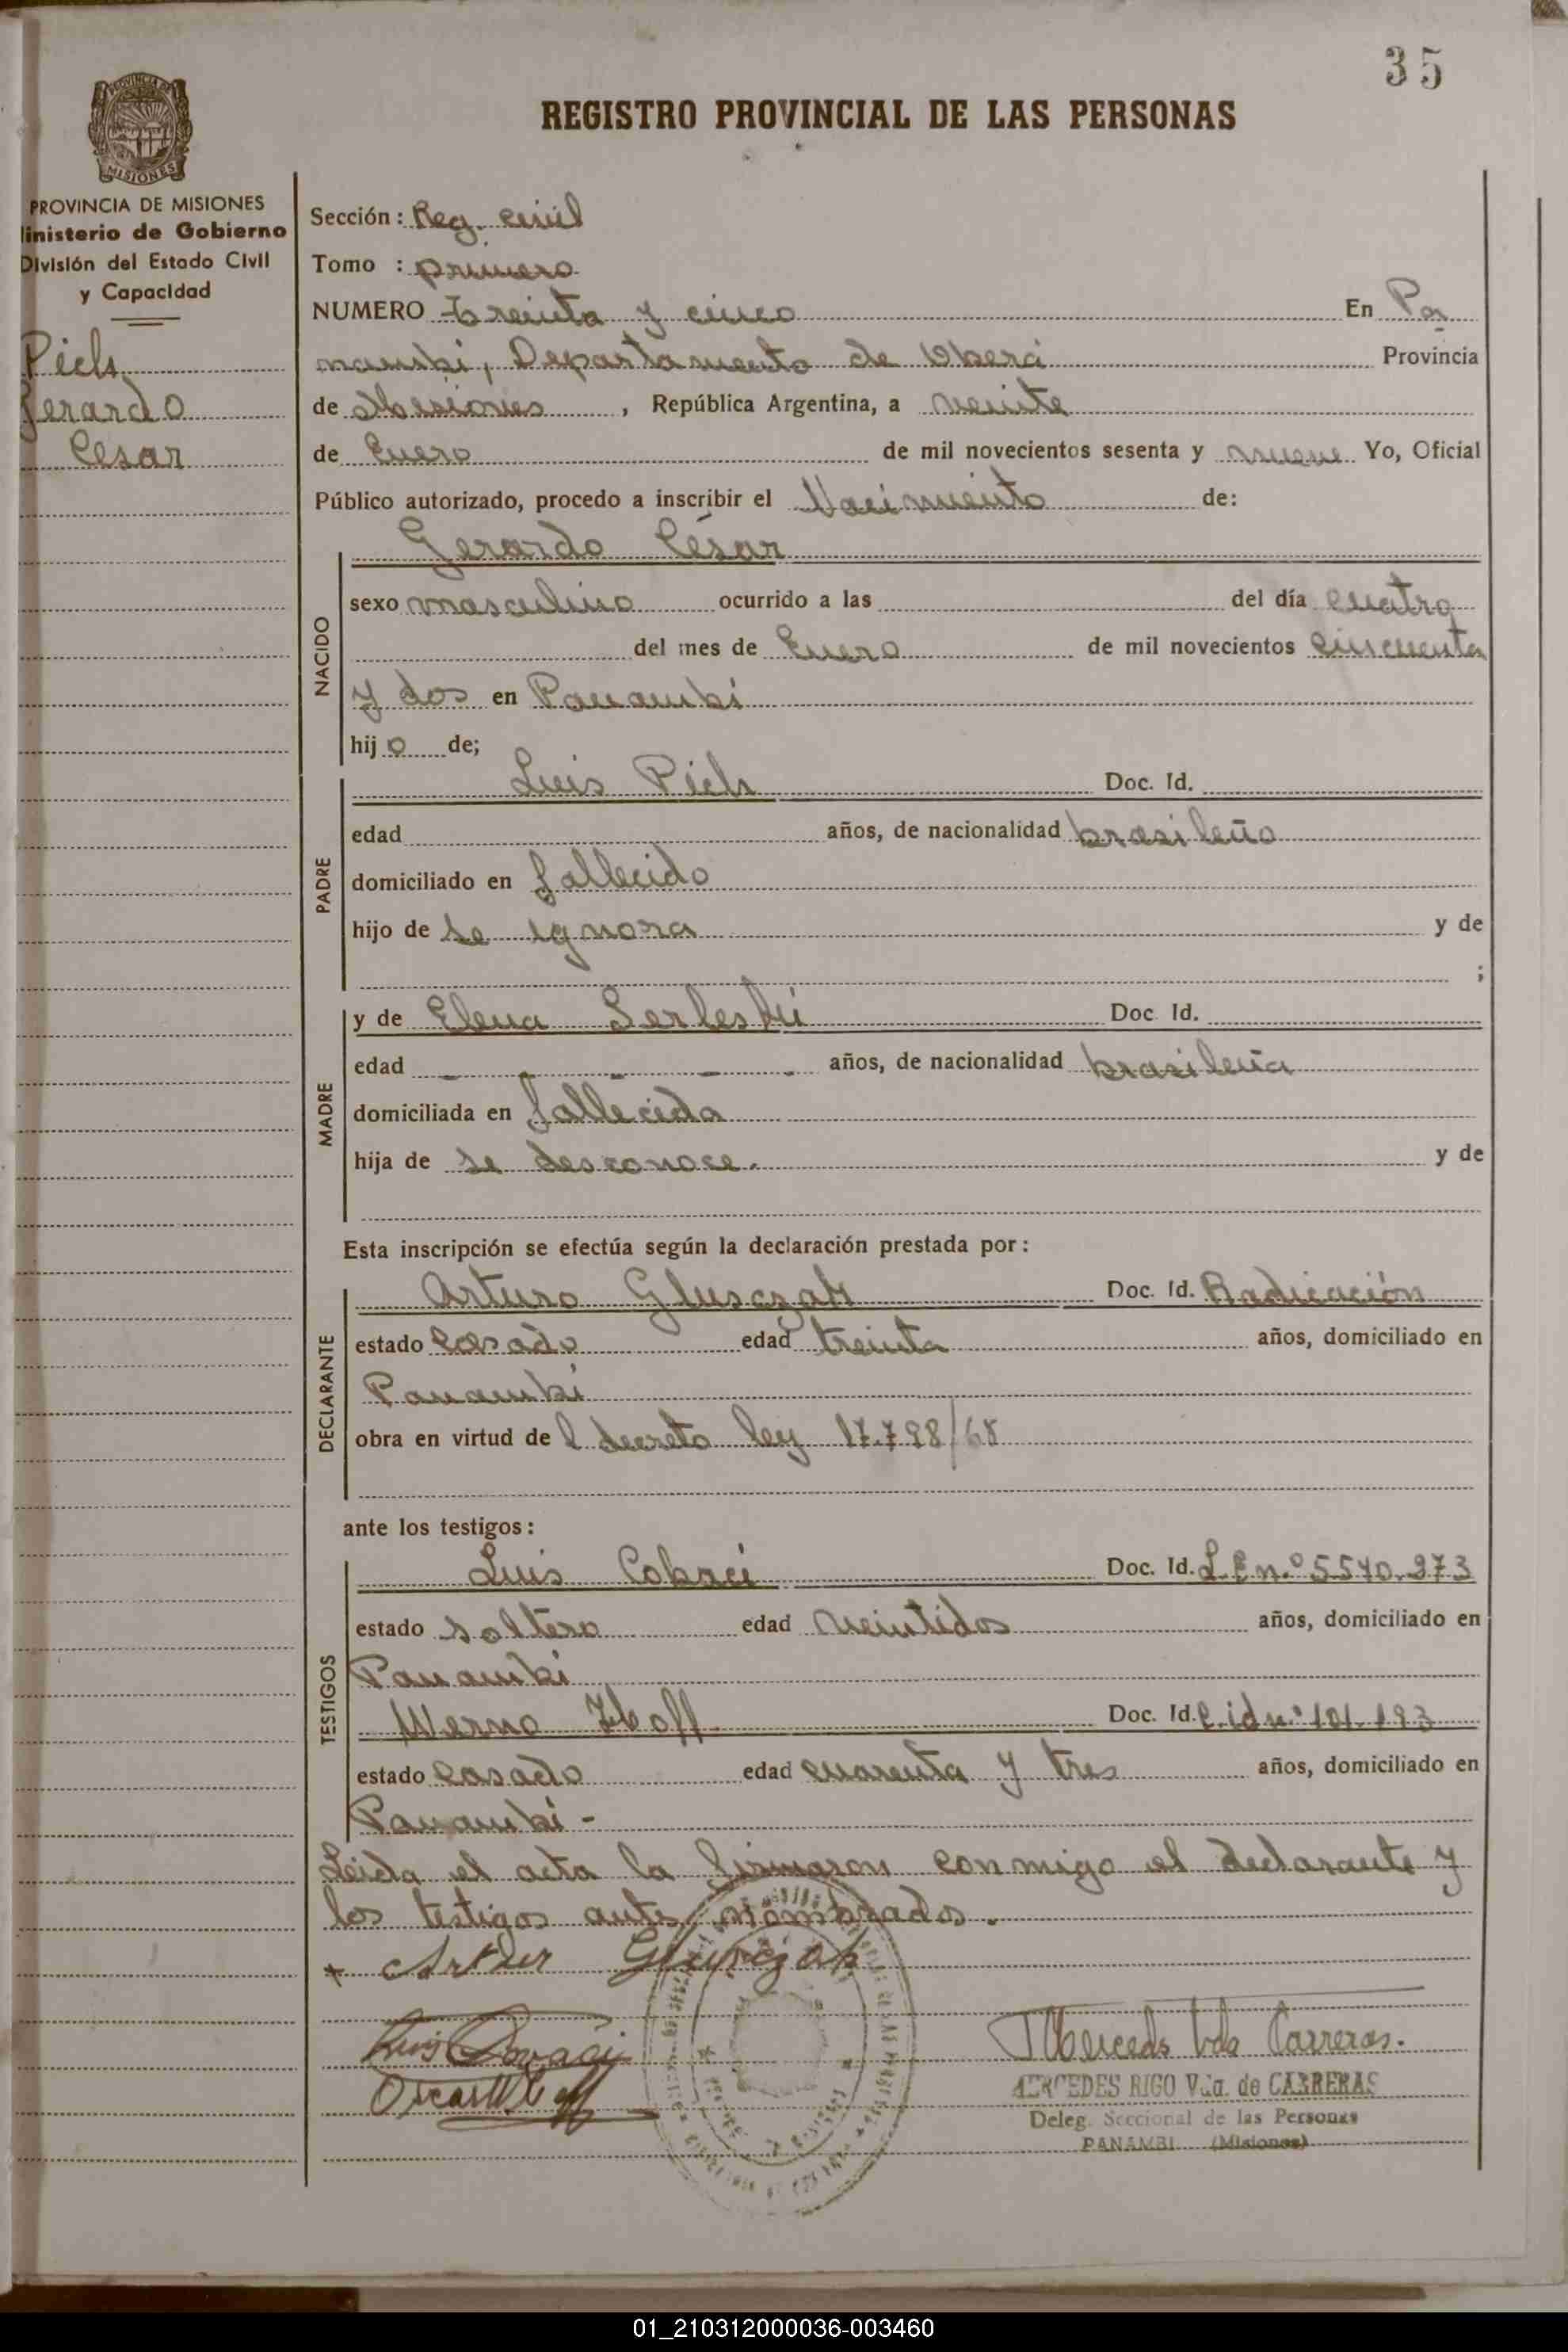 35
REGISTRO PROVINCIAL DE LAS PERSONAS
PROVINCIA DE
MISIONES
PROVINCIA DE MISIONES
inisterio de Gobierno
División del Estado Civil
y Capacidad
Gerardo
Cesar
Sección: Reg. Civil
Tomo : primero
NUMERO treinta y cinco En Pa
nambí, Departamento de Oberá Provincia
de Misiones, República Argentina, a veinte
de Enero de mil novecientos sesenta y nueve Yo, Oficial
Público autorizado, procedo a inscribir el Nacimiento de:
Gerardo César
NACIDO
sexo masculino ocurrido a las del día cuatro
del mes de Enero de mil novecientos cincuenta
y dos en Panambí
hijo de;
PADRE
Luis Doc. Id.
edad años, de nacionalidad brasileño
domiciliado en fallecido
hijo de se ignora y de
;
MADRE
y de Elena Doc. Id.
edad - - - - - años, de nacionalidad brasileña
domiciliada en fallecida
hija de se desconoce. y de
Esta inscripción se efectúa según la declaración prestada por:
DECLARANTE
Arturo Glusczak Doc. Id. Radicación
estado casado edad treinta años, domiciliado en
Panambí
obra en virtud del decreto ley 17.798/68
ante los testigos:
TESTIGOS
Luis Doc. Id. L.E nº 5540.973
estado soltero edad veintidos años, domiciliado en
Panambí
Werno Doc. Id. C.id nº 101.193
estado casado edad cuarenta y tres años, domiciliado en
Panambí -
Leida el acta la firmaron conmigo el declarante y
los testigos antes nombrados.
Luis
Mercedes Vda Carreras.
MERCEDES RIGO Vda. de CARRERAS
Deleg. Seccional de las Personas
PANAMBI (Misiones)
01_210312000036-003460